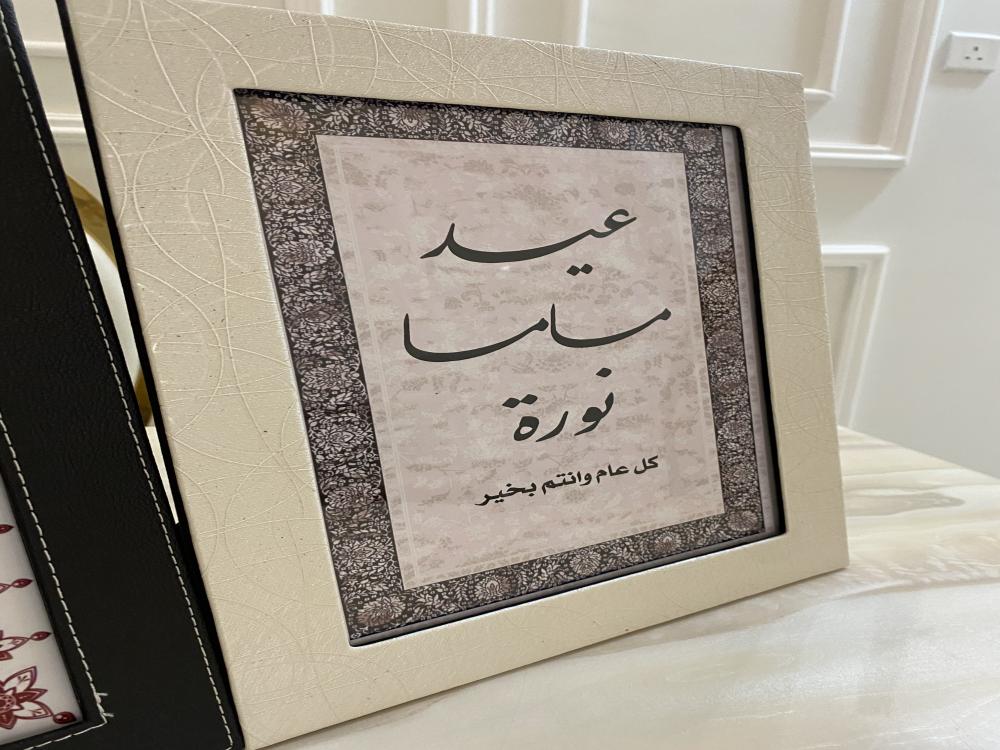 عيد
ماما
نورة
كل عام وانتم بخير